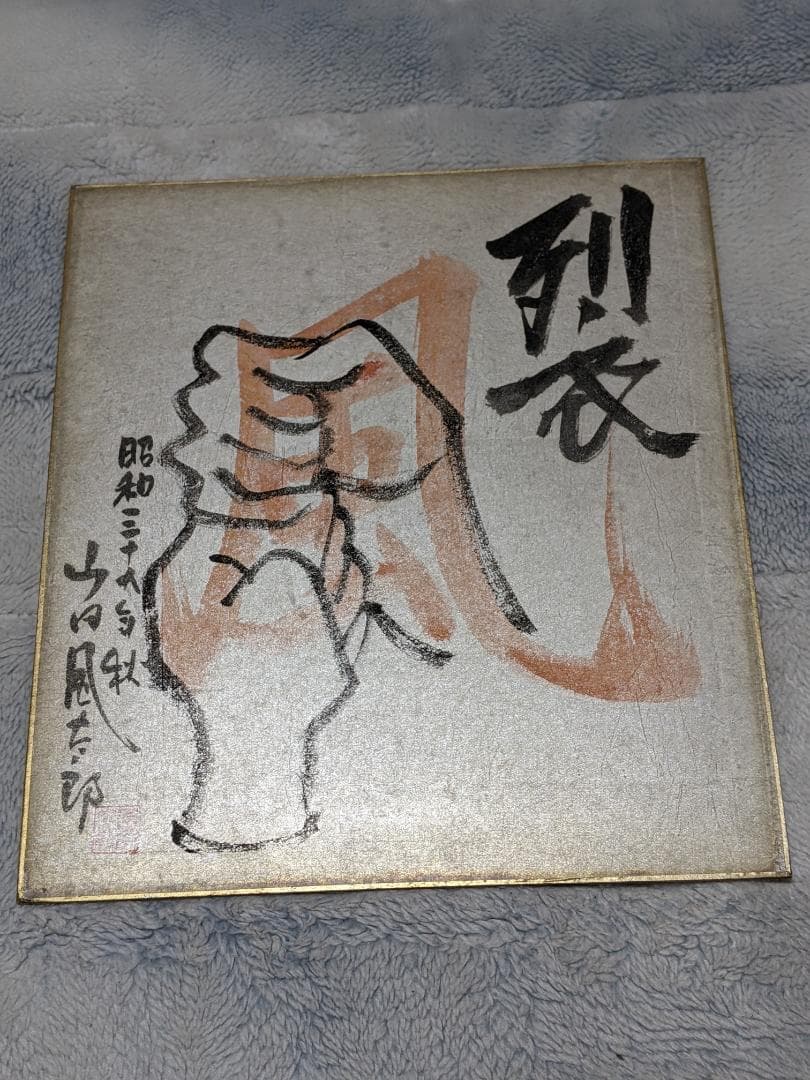 裂
風
昭和三十九年秋
山田風太郎